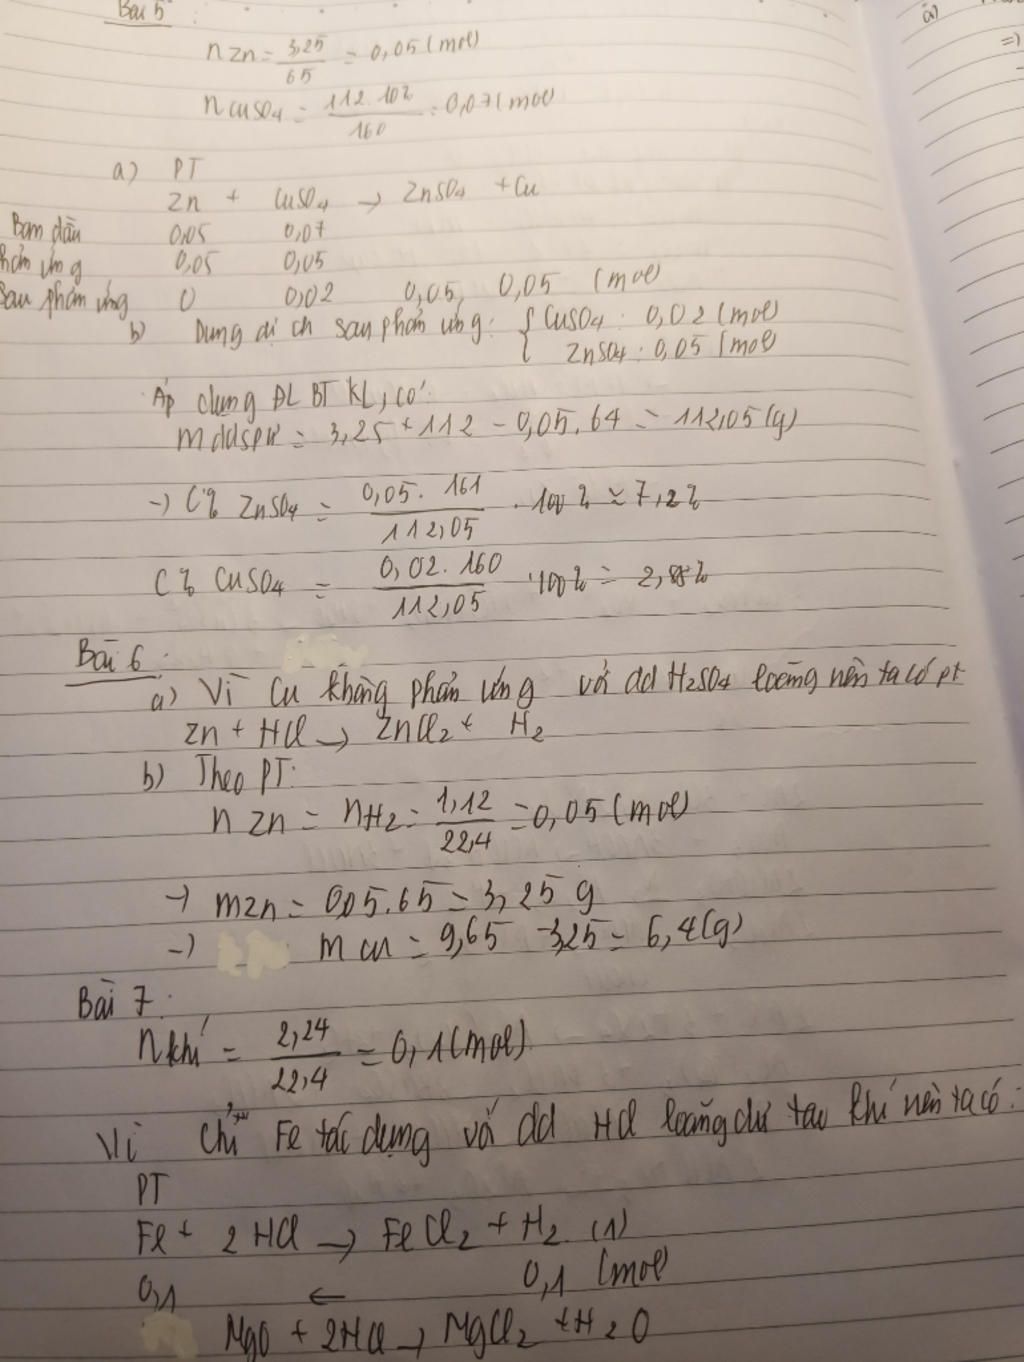 Bài 5
n Zn = 3,25 / 65 = 0,05 (mol)
n CuSO4 = 112.10% / 160 = 0,07 (mol
a) PT
Zn + CuSO4 → ZnSO4 + Cu
Ban đầu 0,05 0,07
phản ứng 0,05 0,05
Sau phản ứng 0 0,02 0,05, 0,05 (mol
b) Dung dịch sau phản ứng: { CuSO4 : 0,02 (mol)
ZnSO4 : 0,05 (mol
Áp dụng ĐL BT KL, có:
m ddspứ = 3,25 + 112 - 0,05.64 = 112,05 (g)
→ C% ZnSO4 = 0,05.161 / 112,05 . 100% ≈ 7,2%
C% CuSO4 = 0,02.160 / 112,05 .100% = 2,8%
Bài 6:
a) Vì Cu không phản ứng với dd H2SO4 loãng nên ta có pt
Zn + HCl → ZnCl2 + H2
b) Theo PT:
n Zn = nH2 = 1,12 / 22,4 = 0,05 (mol)
→ mZn = 0,05.65 = 3,25 g
→ m Cu = 9,65 - 3,25 = 6,4 (g)
Bài 7:
n khí = 2,24 / 22,4 = 0,1 (mol)
Vì chỉ Fe tác dụng với dd HCl loãng dư tạo khí nên ta có:
PT
Fe + 2HCl → FeCl2 + H2 (1)
0,1 ← 0,1 (mol
MgO + 2HCl → MgCl2 + H2O
a)
=)